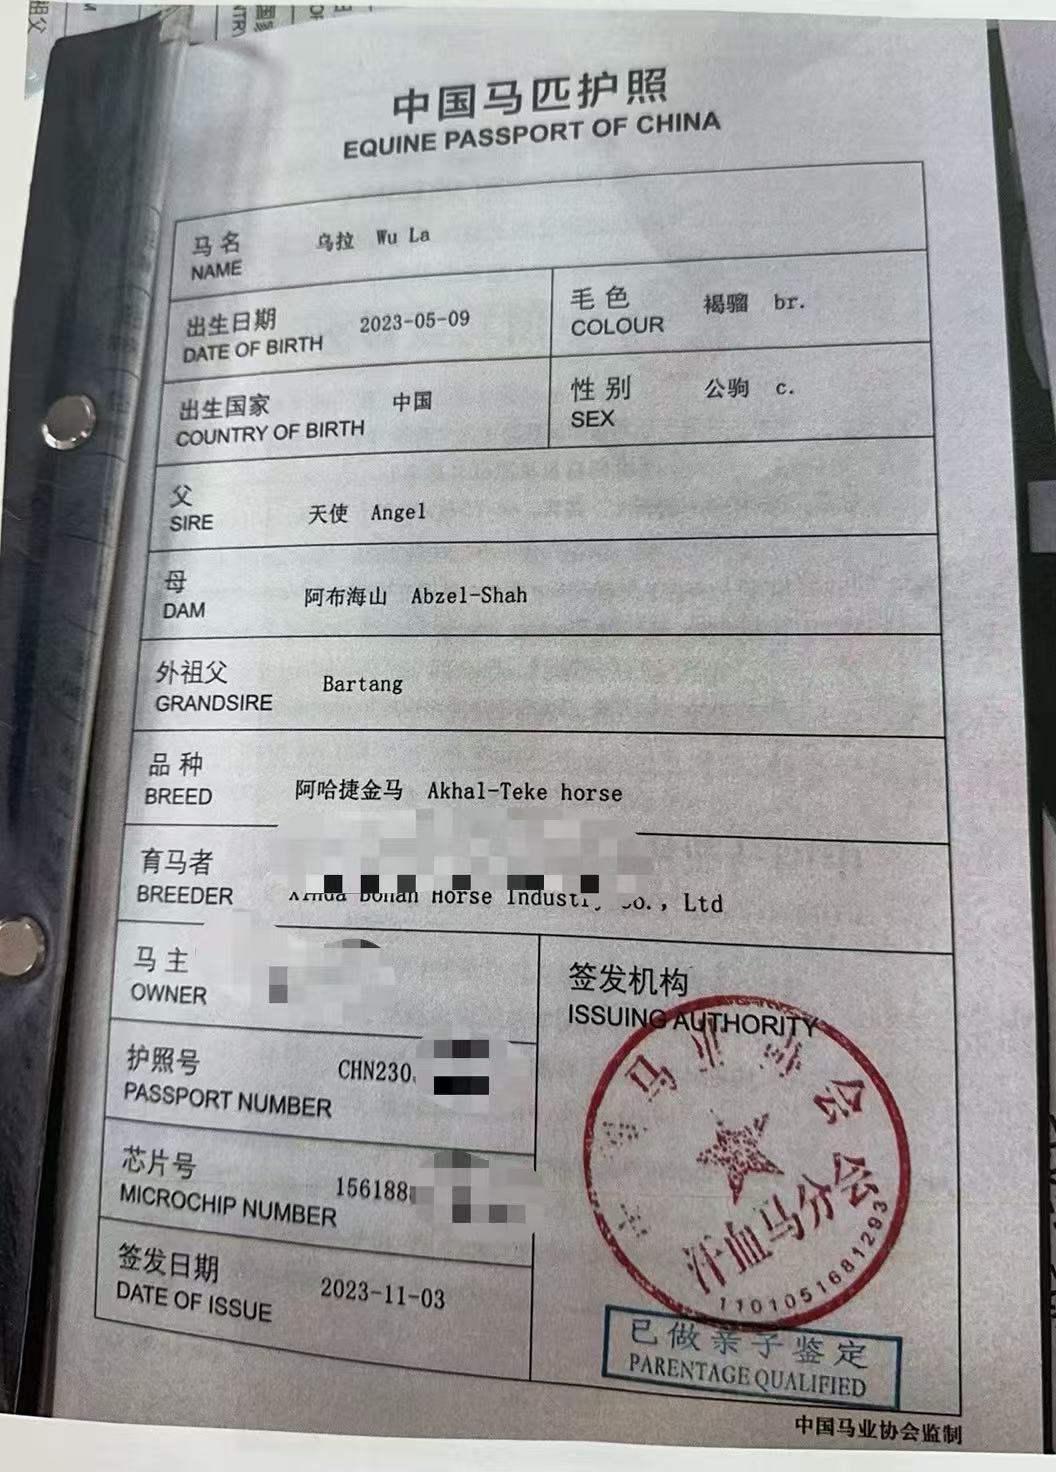 中国马匹护照
EQUINE PASSPORT OF CHINA
马名 乌拉 Wu La
NAME
出生日期 2023-05-09
DATE OF BIRTH
毛色 褐骝 br.
COLOUR
出生国家 中国
COUNTRY OF BIRTH
性别 公驹 c.
SEX
父
SIRE
天使 Angel
母
DAM
阿布海山 Abzel-Shah
外祖父
GRANDSIRE
Bartang
品种
BREED
阿哈捷金马 Akhal-Teke horse
育马者
BREEDER
Horse Industry Co., Ltd
马主
OWNER
护照号 CHN230
PASSPORT NUMBER
芯片号 156188
MICROCHIP NUMBER
签发日期 2023-11-03
DATE OF ISSUE
签发机构
ISSUING AUTHORITY
马业协会
汗血马分会
1101051681293
已做亲子鉴定
PARENTAGE QUALIFIED
中国马业协会监制